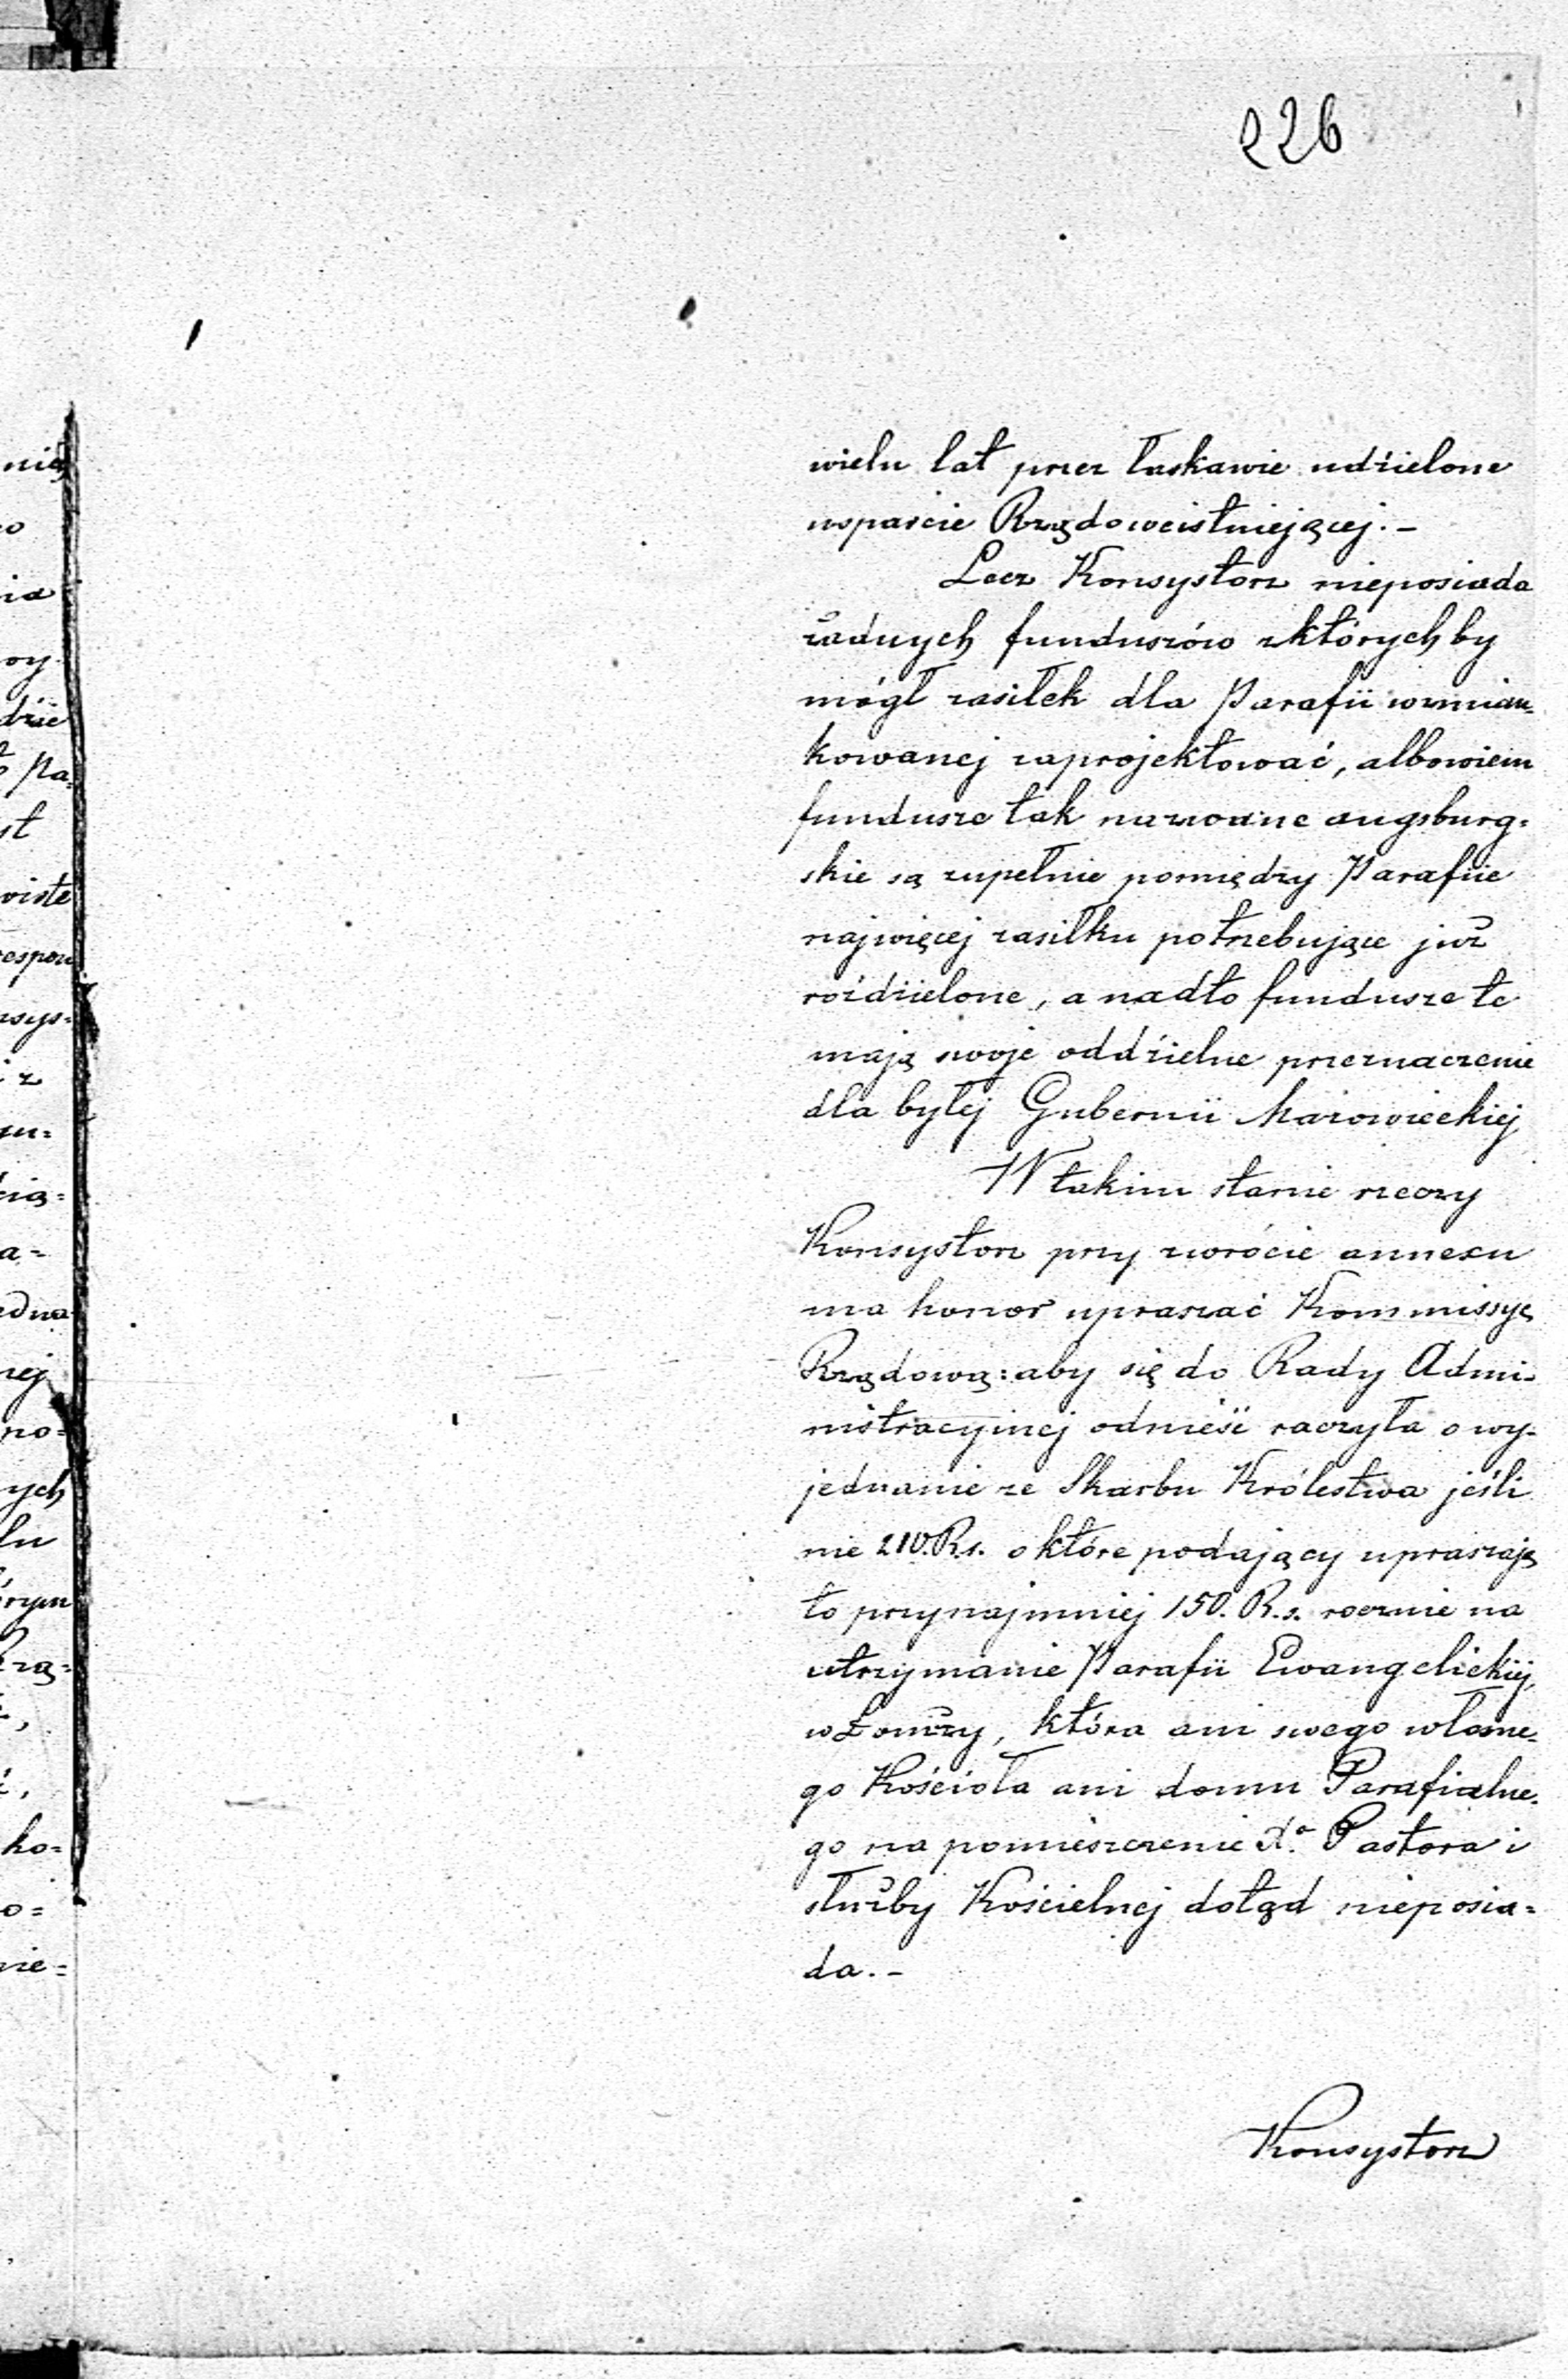 226
wielu lat przez łaskawie udzielone
wsparcie Rządowe istniejącej. -
Lecz Konsystorz nieposiada
żadnych funduszów z których by
mógł zasiłek dla Parafii wzmian=
kowanej zaprojektować, albowiem
fundusze tak nazwane augsburg=
skie są zupełnie pomiędzy Parafiie
najwięcej zasiłku potrzebujące już
rozdzielone, a nadto fundusze te
mają swoje oddzielne przeznaczenie
dla byłej Gubernii Mazowieckiej
W takim stanie rzeczy
Konsystorz przy zwrócie annexu
ma honor upraszać Kommissyę
Rządową: aby się do Rady Admi=
nistracyinej odnieść raczyła o wy=
jednanie ze Skarbu Królestwa jeśli
nie 210. R.s. o które podający upraszają
to przynajmniej 150. R.s. rocznie na
utrzymanie Parafii Ewangelickiej,
w Łomży, która ani swego własne=
go Kościoła ani domu Parafialne=
go na pomieszczenie X.a Pastora i
służby Kościelnej dotąd nieposia=
da. -
Konsystorz